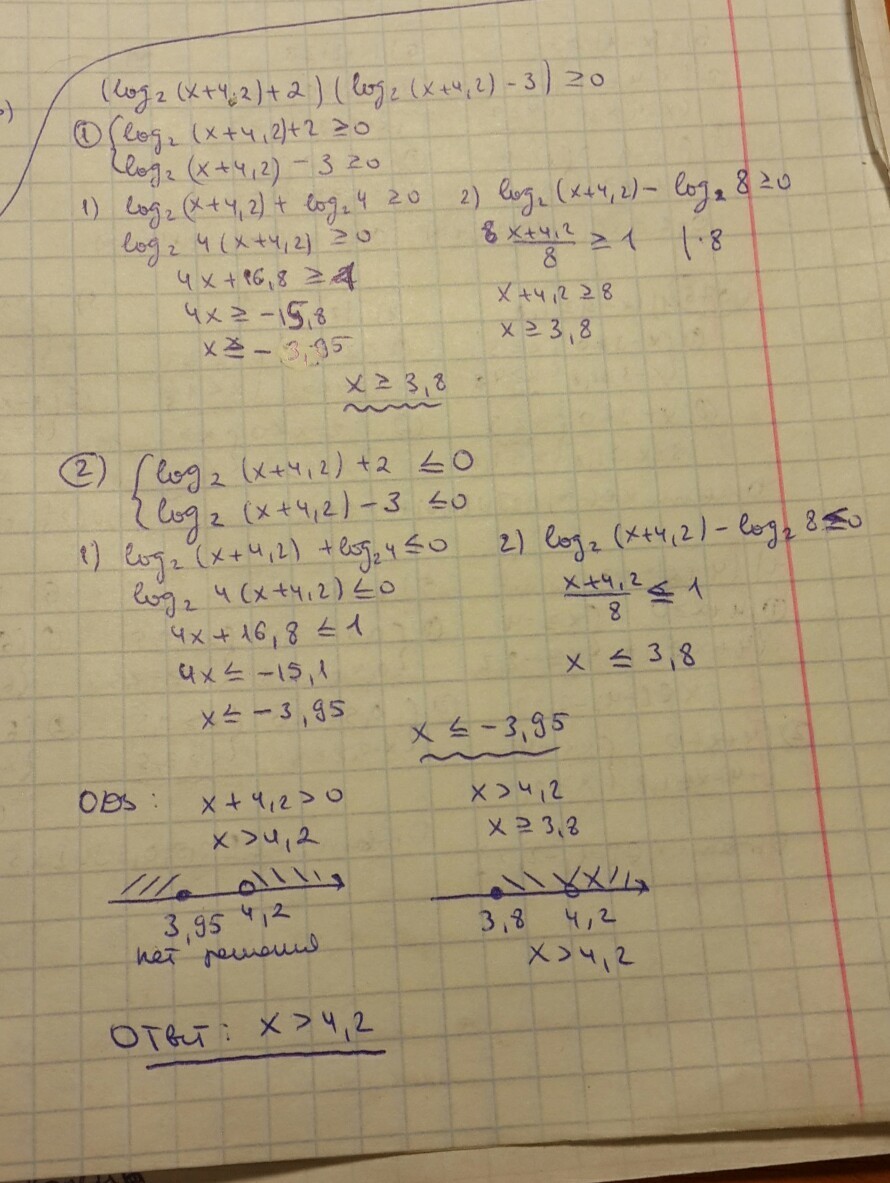 (log₂(x+4,2)+2)(log₂(x+4,2)-3)≥0
① {log₂(x+4,2)+2≥0
log₂(x+4,2)-3≥0
1) log₂(x+4,2)+log₂4≥0
log₂4(x+4,2)≥0
4x+16,8≥1
4x≥-15,8
x≥-3,95
2) log₂(x+4,2)-log₂8≥0
x+4,2/8≥1 |·8
x+4,2≥8
x≥3,8
x≥3,8
② {log₂(x+4,2)+2≤0
log₂(x+4,2)-3≤0
1) log₂(x+4,2)+log₂4≤0
log₂4(x+4,2)≤0
4x+16,8≤1
4x≤-15,1
x≤-3,95
2) log₂(x+4,2)-log₂8≤0
x+4,2/8≤1
x≤3,8
x≤-3,95
ОДЗ: x+4,2>0
x>4,2
3,95 4,2
нет решения
x>4,2
x≥3,8
3,8 4,2
x>4,2
Ответ: x>4,2